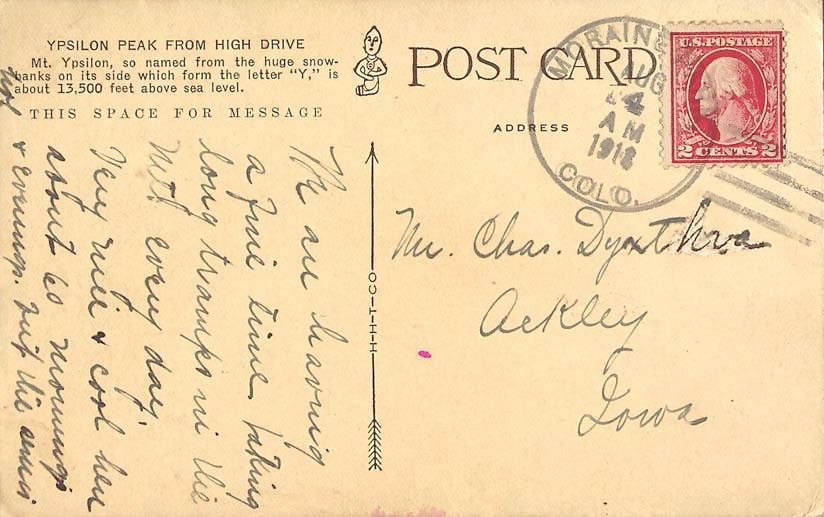 YPSILON PEAK FROM HIGH DRIVE
Mt. Ypsilon, so named from the huge snow-
banks on its side which form the letter "Y," is
about 13,500 feet above sea level.
THIS SPACE FOR MESSAGE
We are having
a fine time, taking
long tramps in the
Mts every day.
Very nice & cool here
about 60 mornings
& evenings. but the
H-H-T-CO
POST CARD
ADDRESS
MORAINE
AUG
24
AM
1918
COLO.
U.S. POSTAGE
2 CENTS 2
Mr. Chas.
Ackley
Iowa